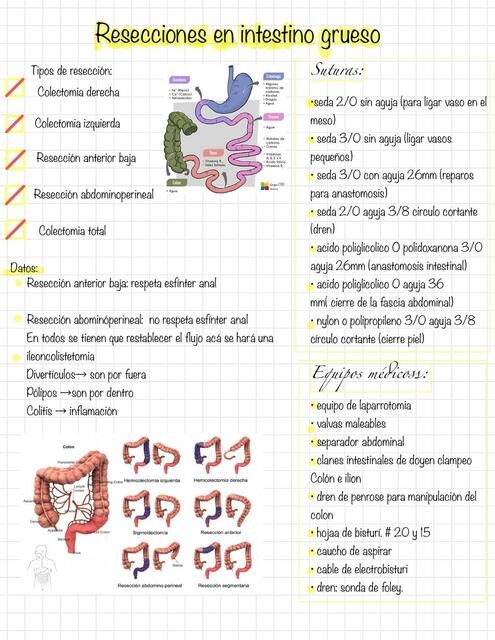 Resecciones en intestino grueso
Tipos de resección:
Colectomia derecha
Colectomia izquierda
Resección anterior baja
Resección abdominoperineal
Colectomia total
Duodeno
Estómago
Yeyuno
Íleon
Colon
Agua
Datos:
Resección anterior baja: respeta esfínter anal
Resección abominóperineal: no respeta esfínter anal
En todos se tienen que restablecer el flujo acá se hará una
ileoncolistetomia
Divertículos→ son por fuera
Pólipos →son por dentro
Colitis → inflamación
Colon
Hemicolectomia izquierda
Hemicolectomia derecha
Sigmoidectomia
Resección anterior
Resección abdomino-perineal
Resección segmentaria
Suturas:
•seda 2/0 sin aguja (para ligar vaso en el
meso)
• seda 3/0 sin aguja (ligar vasos
pequeños)
• seda 3/0 con aguja 26mm (reparos
para anastomosis)
• seda 2/0 aguja 3/8 circulo cortante
(dren)
• acido poliglicolico 0 polidoxanona 3/0
aguja 26mm (anastomosis intestinal)
• acido poliglicolico 0 aguja 36
mm( cierre de la fascia abdominal)
• nylon o polipropileno 3/0 aguja 3/8
círculo cortante (cierre piel)
Equipos médicoss:
• equipo de laparrotomia
• valvas maleables
• separador abdominal
• clanes intestinales de doyen clampeo
Colón e ilion
• dren de penrose para manipulación del
colon
• hojaa de bisturí. # 20 y 15
• caucho de aspirar
• cable de electrobisturi
• dren: sonda de foley.